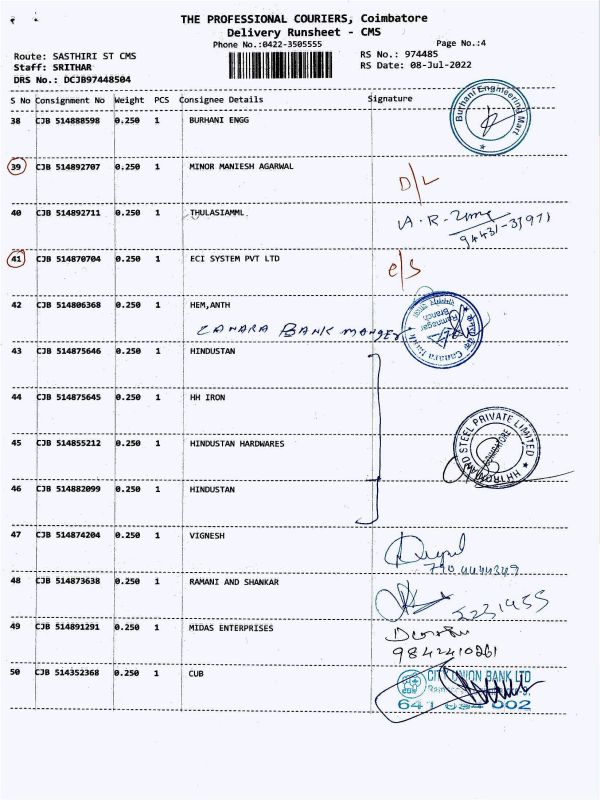 THE PROFESSIONAL COURIERS, Coimbatore
Delivery Runsheet - CMS
Phone No.:0422-3505555
Page No.:4
Route: SASTHIRI ST CMS
Staff: SRITHAR
DRS No.: DCJB97448504
RS No.: 974485
RS Date: 08-Jul-2022
S No Consignment No Weight PCS Consignee Details Signature
38 CJB 514888598 0.250 1 BURHANI ENGG
Burhani Engineering Mart
39 CJB 514892707 0.250 1 MINOR MANIESH AGARWAL D/L
40 CJB 514892711 0.250 1 THULASIAMML A.R.
94431-31971
41 CJB 514870704 0.250 1 ECI SYSTEM PVT LTD e/s
42 CJB 514806368 0.250 1 HEM,ANTH
CANARA BANK MANGER
Canara Bank
Ramnagar
Branch
43 CJB 514875646 0.250 1 HINDUSTAN
44 CJB 514875645 0.250 1 HH IRON
45 CJB 514855212 0.250 1 HINDUSTAN HARDWARES
HH IRON AND STEEL PRIVATE LIMITED
COIMBATORE
46 CJB 514882099 0.250 1 HINDUSTAN
47 CJB 514874204 0.250 1 VIGNESH
7904444349
48 CJB 514873638 0.250 1 RAMANI AND SHANKAR
2231455
49 CJB 514891291 0.250 1 MIDAS ENTERPRISES
9842410261
50 CJB 514352368 0.250 1 CUB
CITY UNION BANK LTD
002